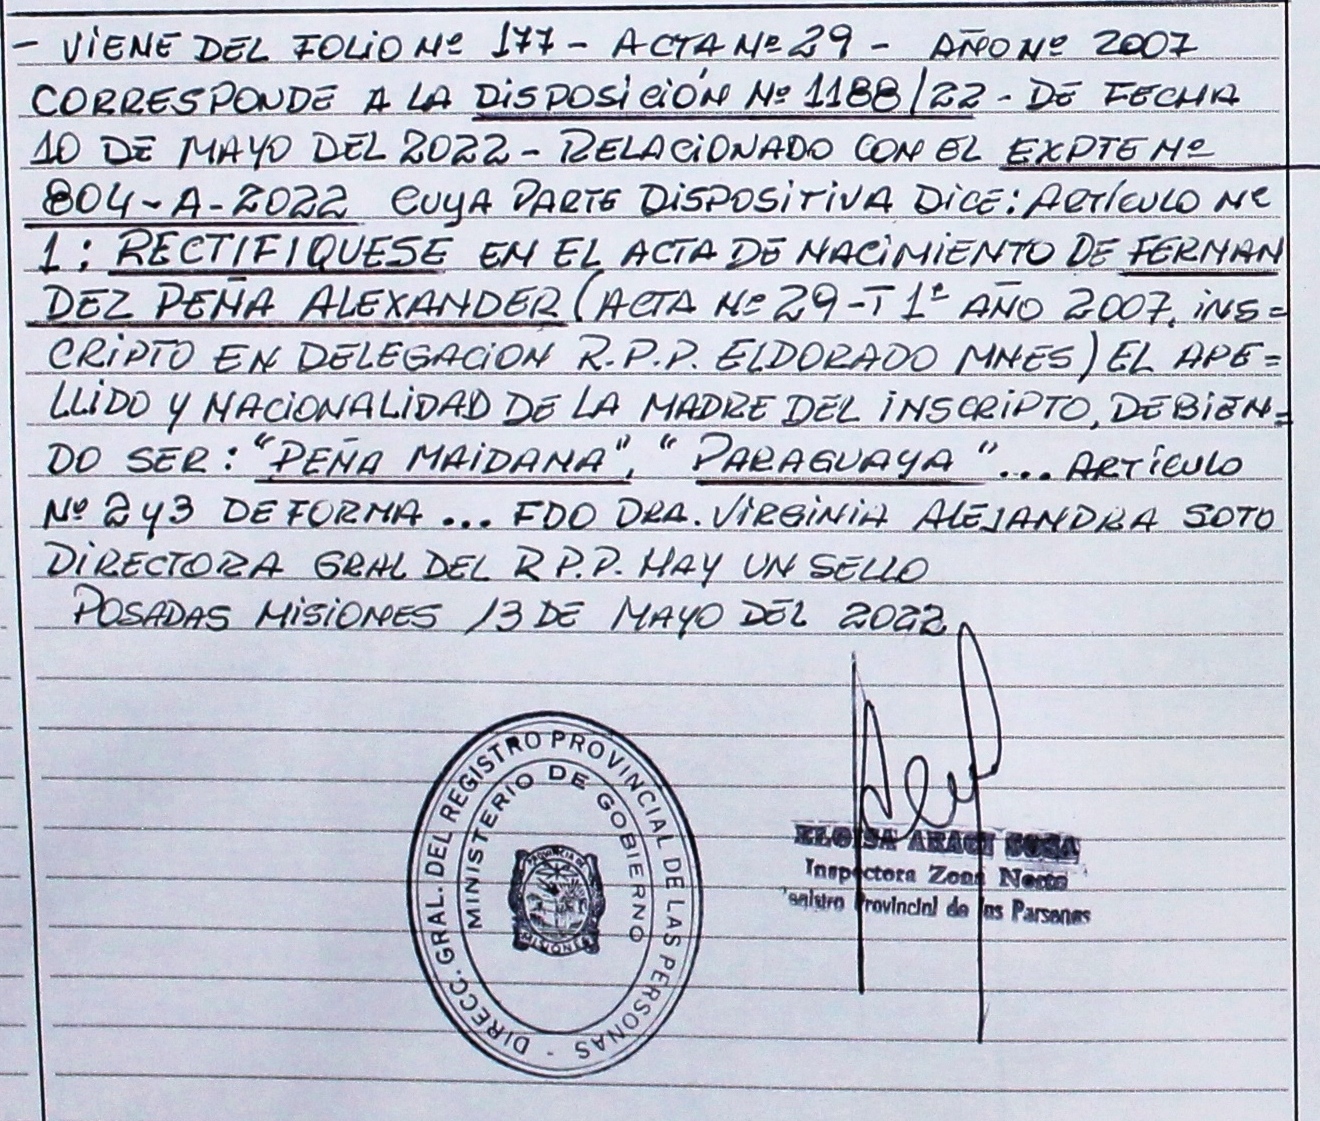 - VIENE DEL FOLIO Nº 177 - ACTA Nº 29 - AÑO Nº 2007
CORRESPONDE A LA DISPOSICIÓN Nº 1188/22 - DE FECHA
10 DE MAYO DEL 2022 - RELACIONADO CON EL EXPTE Nº
804-A-2022 CUYA PARTE DISPOSITIVA DICE: ARTÍCULO Nº
1: RECTIFIQUESE EN EL ACTA DE NACIMIENTO DE FERNAN
DEZ PEÑA ALEXANDER (ACTA Nº 29-T 1º AÑO 2007, INS=
CRIPTO EN DELEGACION R.P.P. ELDORADO MNES) EL APE=
LLIDO Y NACIONALIDAD DE LA MADRE DEL INSCRIPTO, DEBIEN=
DO SER: "PEÑA MAIDANA", "PARAGUAYA"... ARTÍCULO
Nº 2 Y 3 DE FORMA ... FDO DRA. VIRGINIA ALEJANDRA SOTO
DIRECTORA GRAL DEL R P.P. HAY UN SELLO
POSADAS MISIONES 13 DE MAYO DEL 2022
DIRECC. GRAL. DEL REGISTRO PROVINCIAL DE LAS PERSONAS -
MINISTERIO DE GOBIERNO
PROVINCIA DE
MISIONES
ELOISA ARACI SOSA
Inspectora Zona Norte
Provincial de las Personas